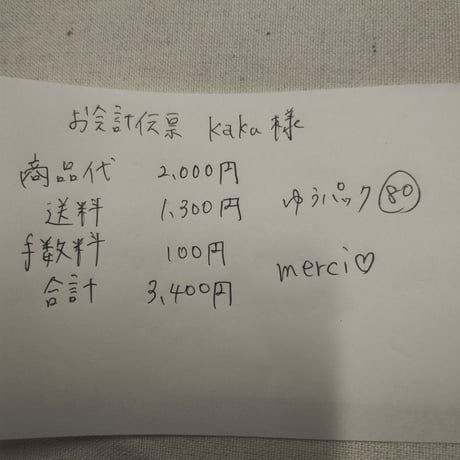 お会計伝票 kaka様
商品代 2,000円
送料 1,300円 ゆうパック 80
手数料 100円
合計 3,400円 merci♡